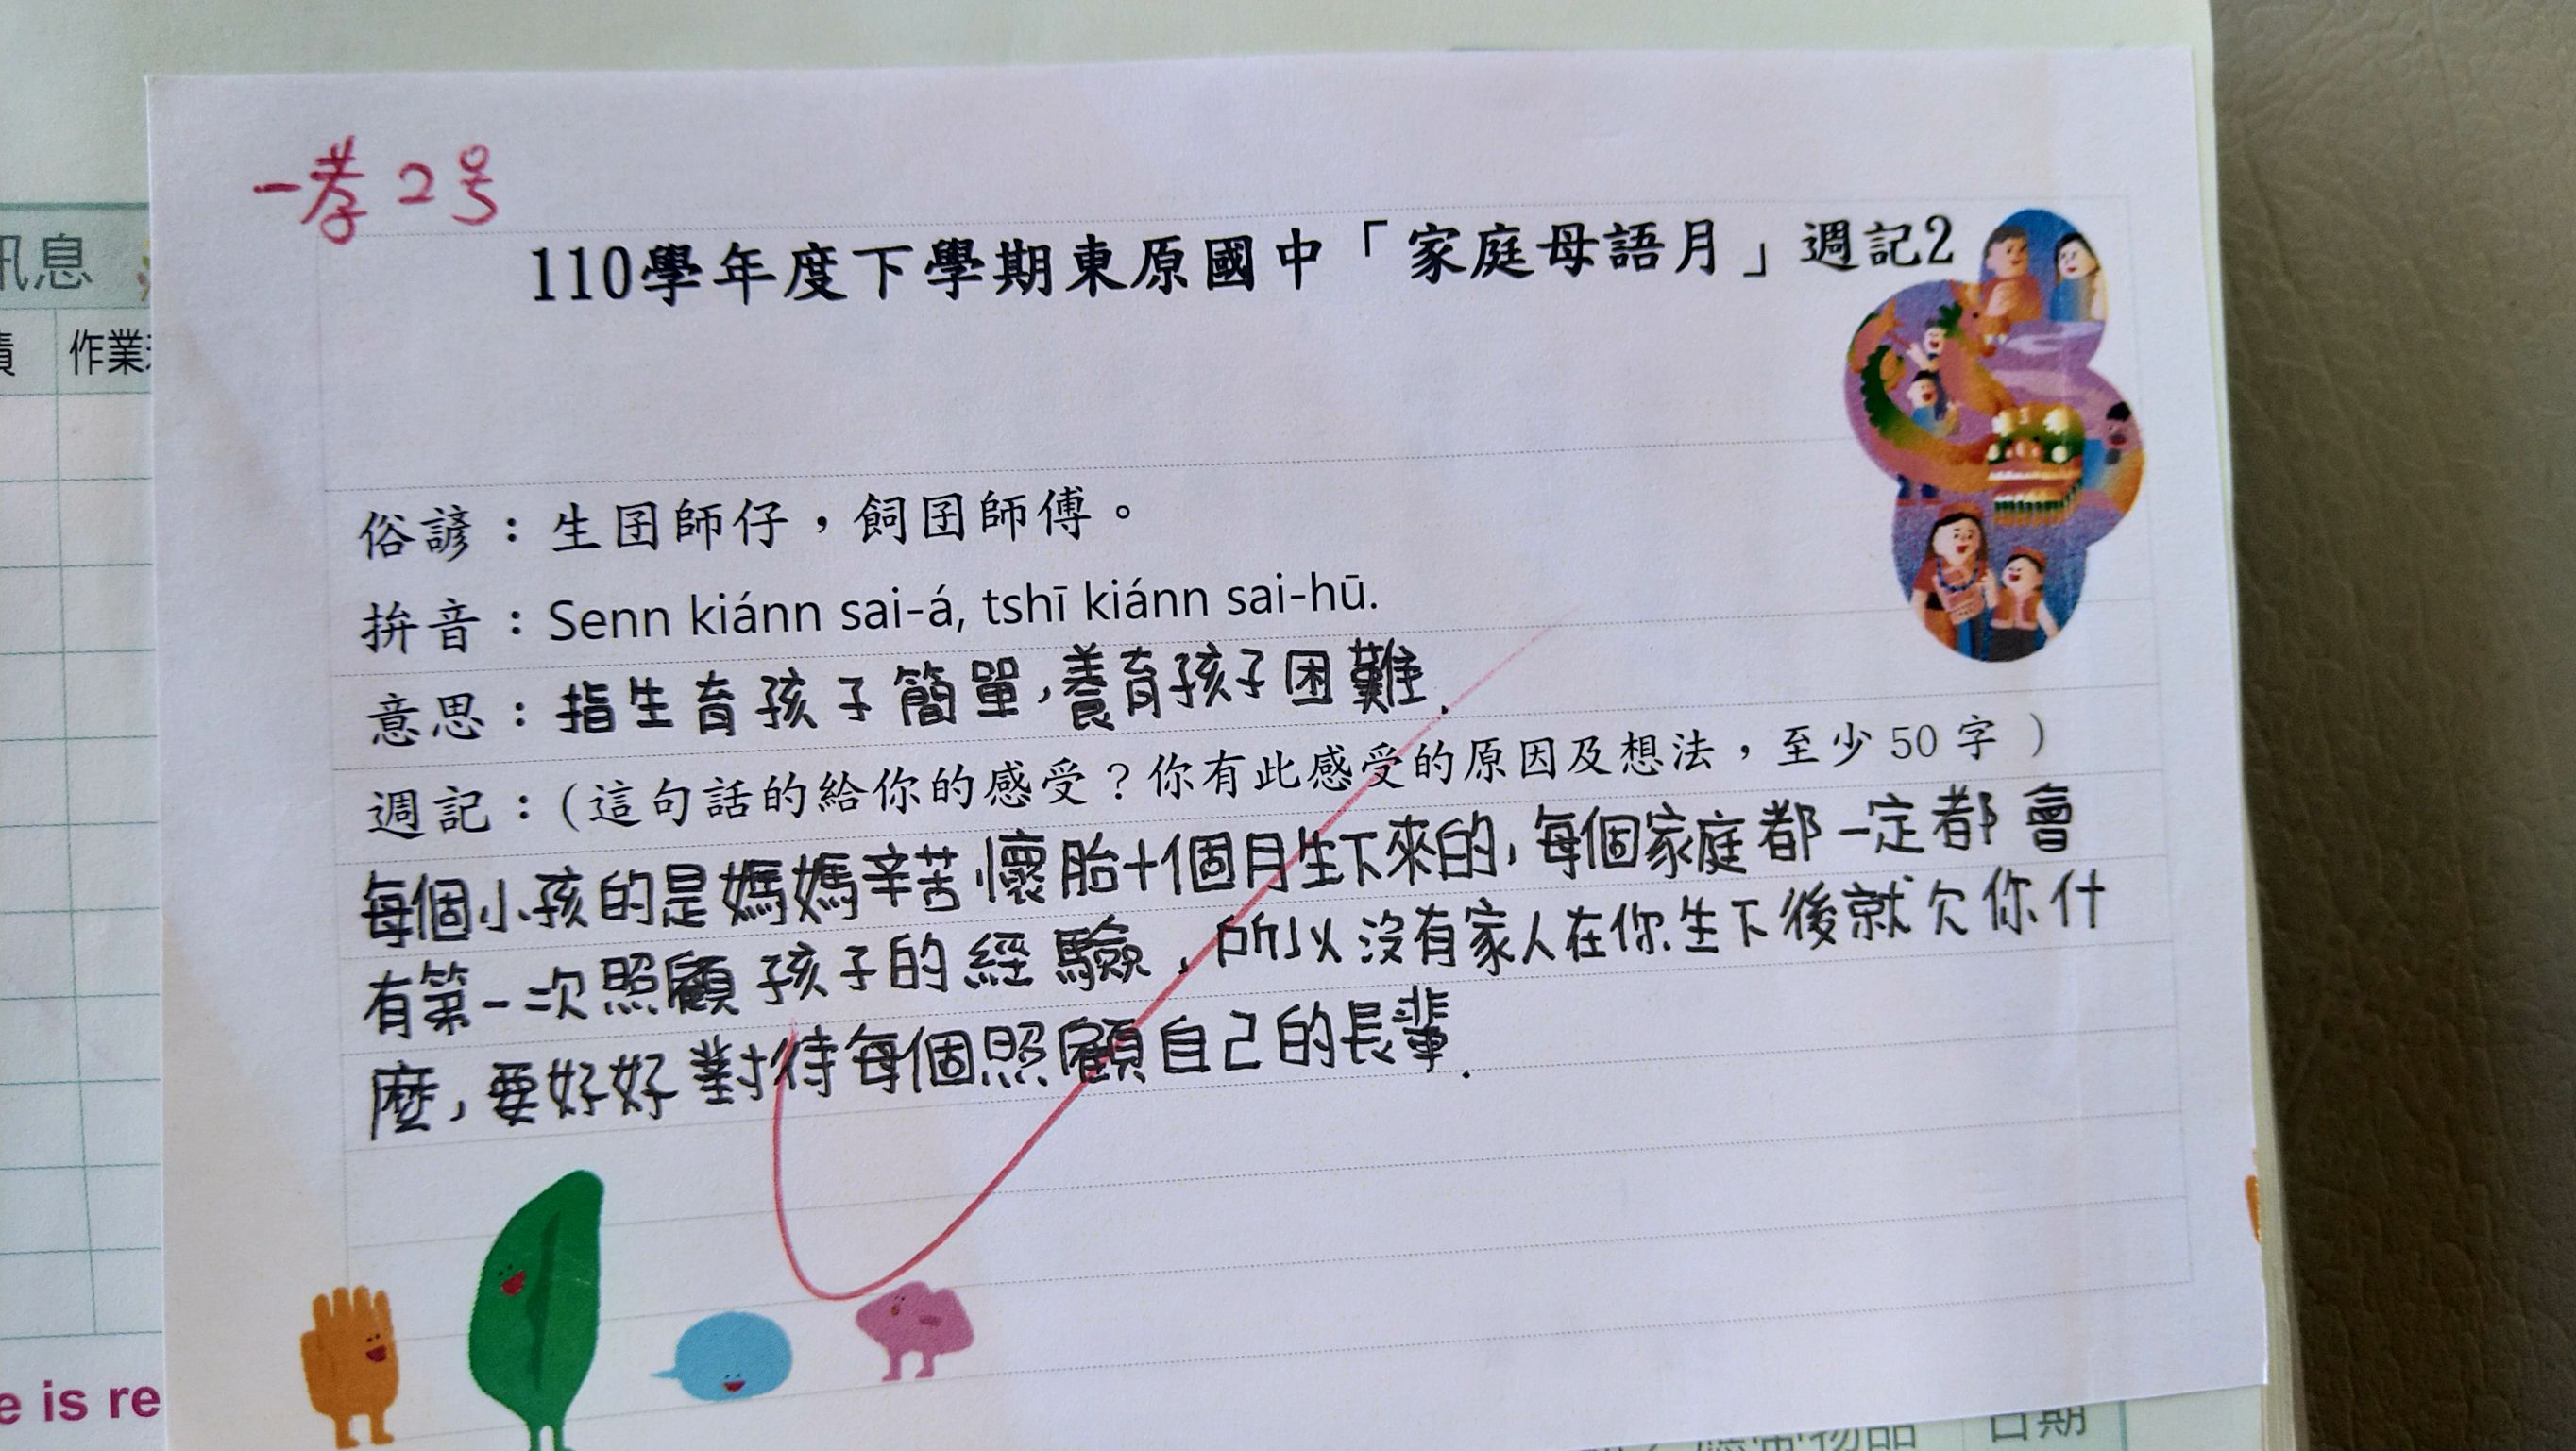 一孝2号
110學年度下學期東原國中「家庭母語月」週記2
俗諺：生囝師仔，飼囝師傅。
拚音：Senn kiánn sai-á, tshī kiánn sai-hū.
意思：指生育孩子簡單,養育孩子困難.
週記：(這句話的給你的感受？你有此感受的原因及想法，至少50字 )
每個小孩的是媽媽辛苦懷胎十個月生下來的,每個家庭都一定都會
有第一次照顧孩子的經驗,所以沒有家人在你生下後就欠你什
麼,要好好對待每個照顧自己的長輩.
訊息
作業
e is re
日期